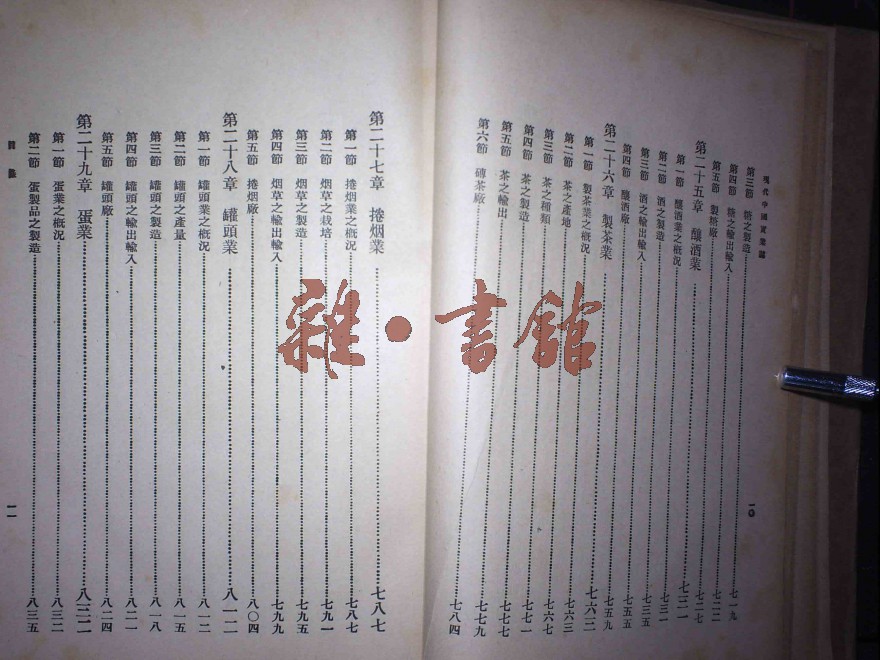 現代中國實業誌
一〇
第三節 糖之製造……七一九
第四節 糖之輸出輸入……七二二
第五節 製糖廠……七二七
第二十五章 釀酒業……七三一
第一節 釀酒業之概況……七三一
第二節 酒之製造……七三五
第三節 酒之輸出輸入……七五五
第四節 釀酒廠……七五九
第二十六章 製茶業……七六二
第一節 製茶業之概況……七六三
第二節 茶之產地……七六七
第三節 茶之種類……七七一
第四節 茶之製造……七七七
第五節 茶之輸出……七七九
第六節 磚茶廠……七八四
第二十七章 捲烟業……七八七
第一節 捲烟業之概況……七八七
第二節 烟草之栽培……七九一
第三節 烟草之製造……七九五
第四節 烟草之輸出輸入……七九九
第五節 捲烟廠……八〇四
第二十八章 罐頭業……八一二
第一節 罐頭業之概況……八一二
第二節 罐頭之產量……八一五
第三節 罐頭之製造……八一八
第四節 罐頭之輸出輸入……八二一
第五節 罐頭廠……八二四
第二十九章 蛋業……八三二
第一節 蛋業之概況……八三二
第二節 蛋製品之製造……八三五
目錄
一一
雜·書館